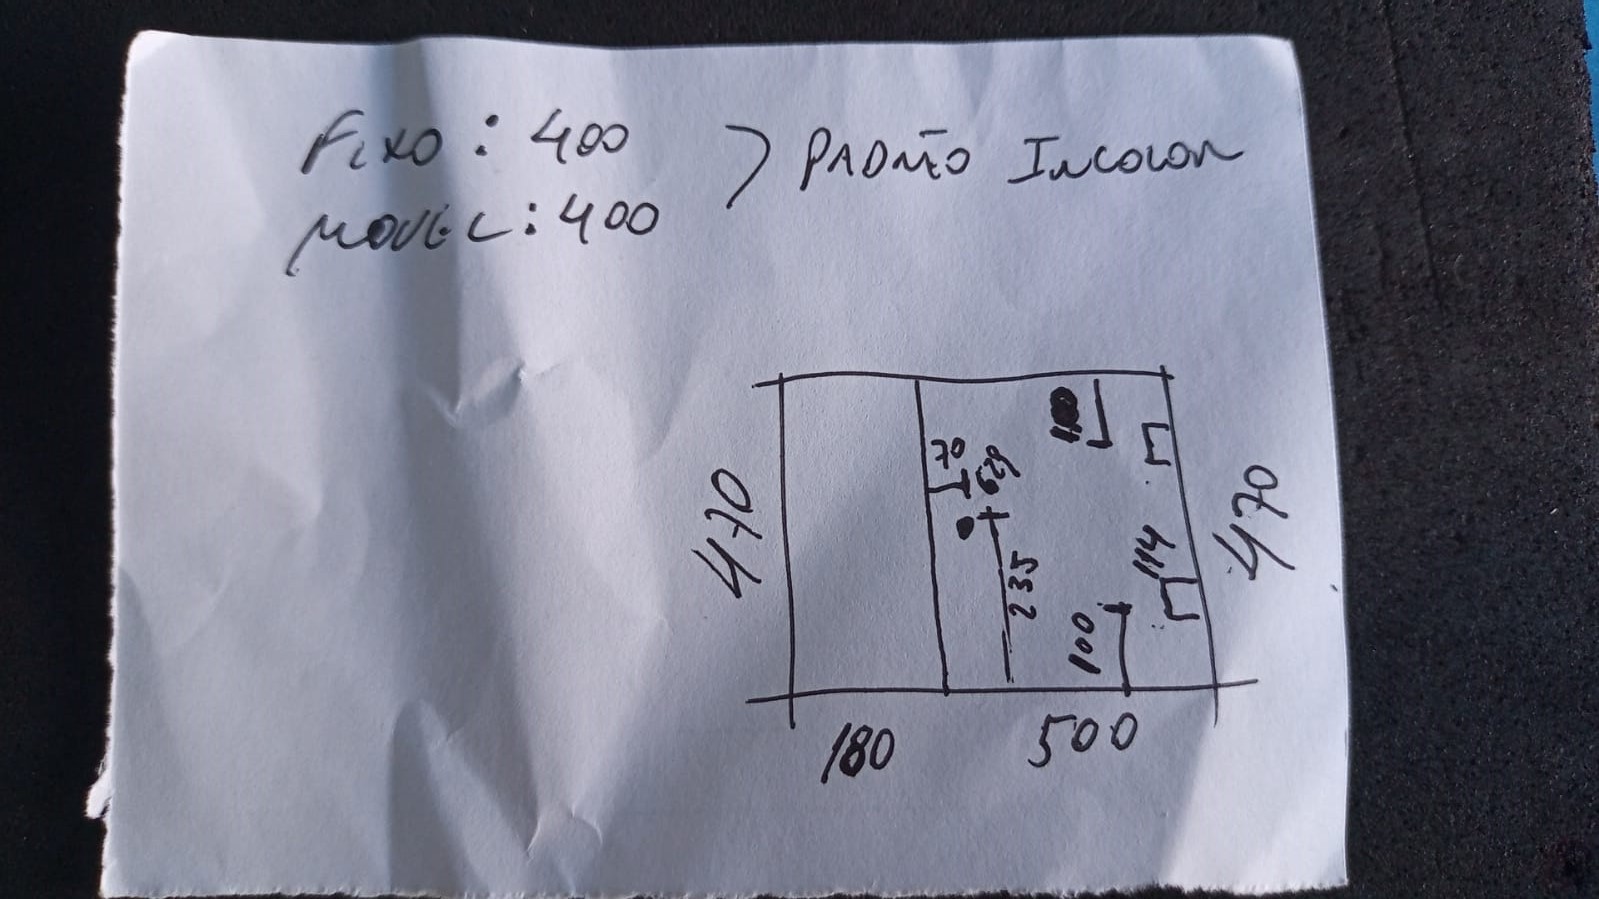 FIXO: 400
MOVEL: 400
> PADRÃO INCOLOR
470
70
235
100
114
470
180
500